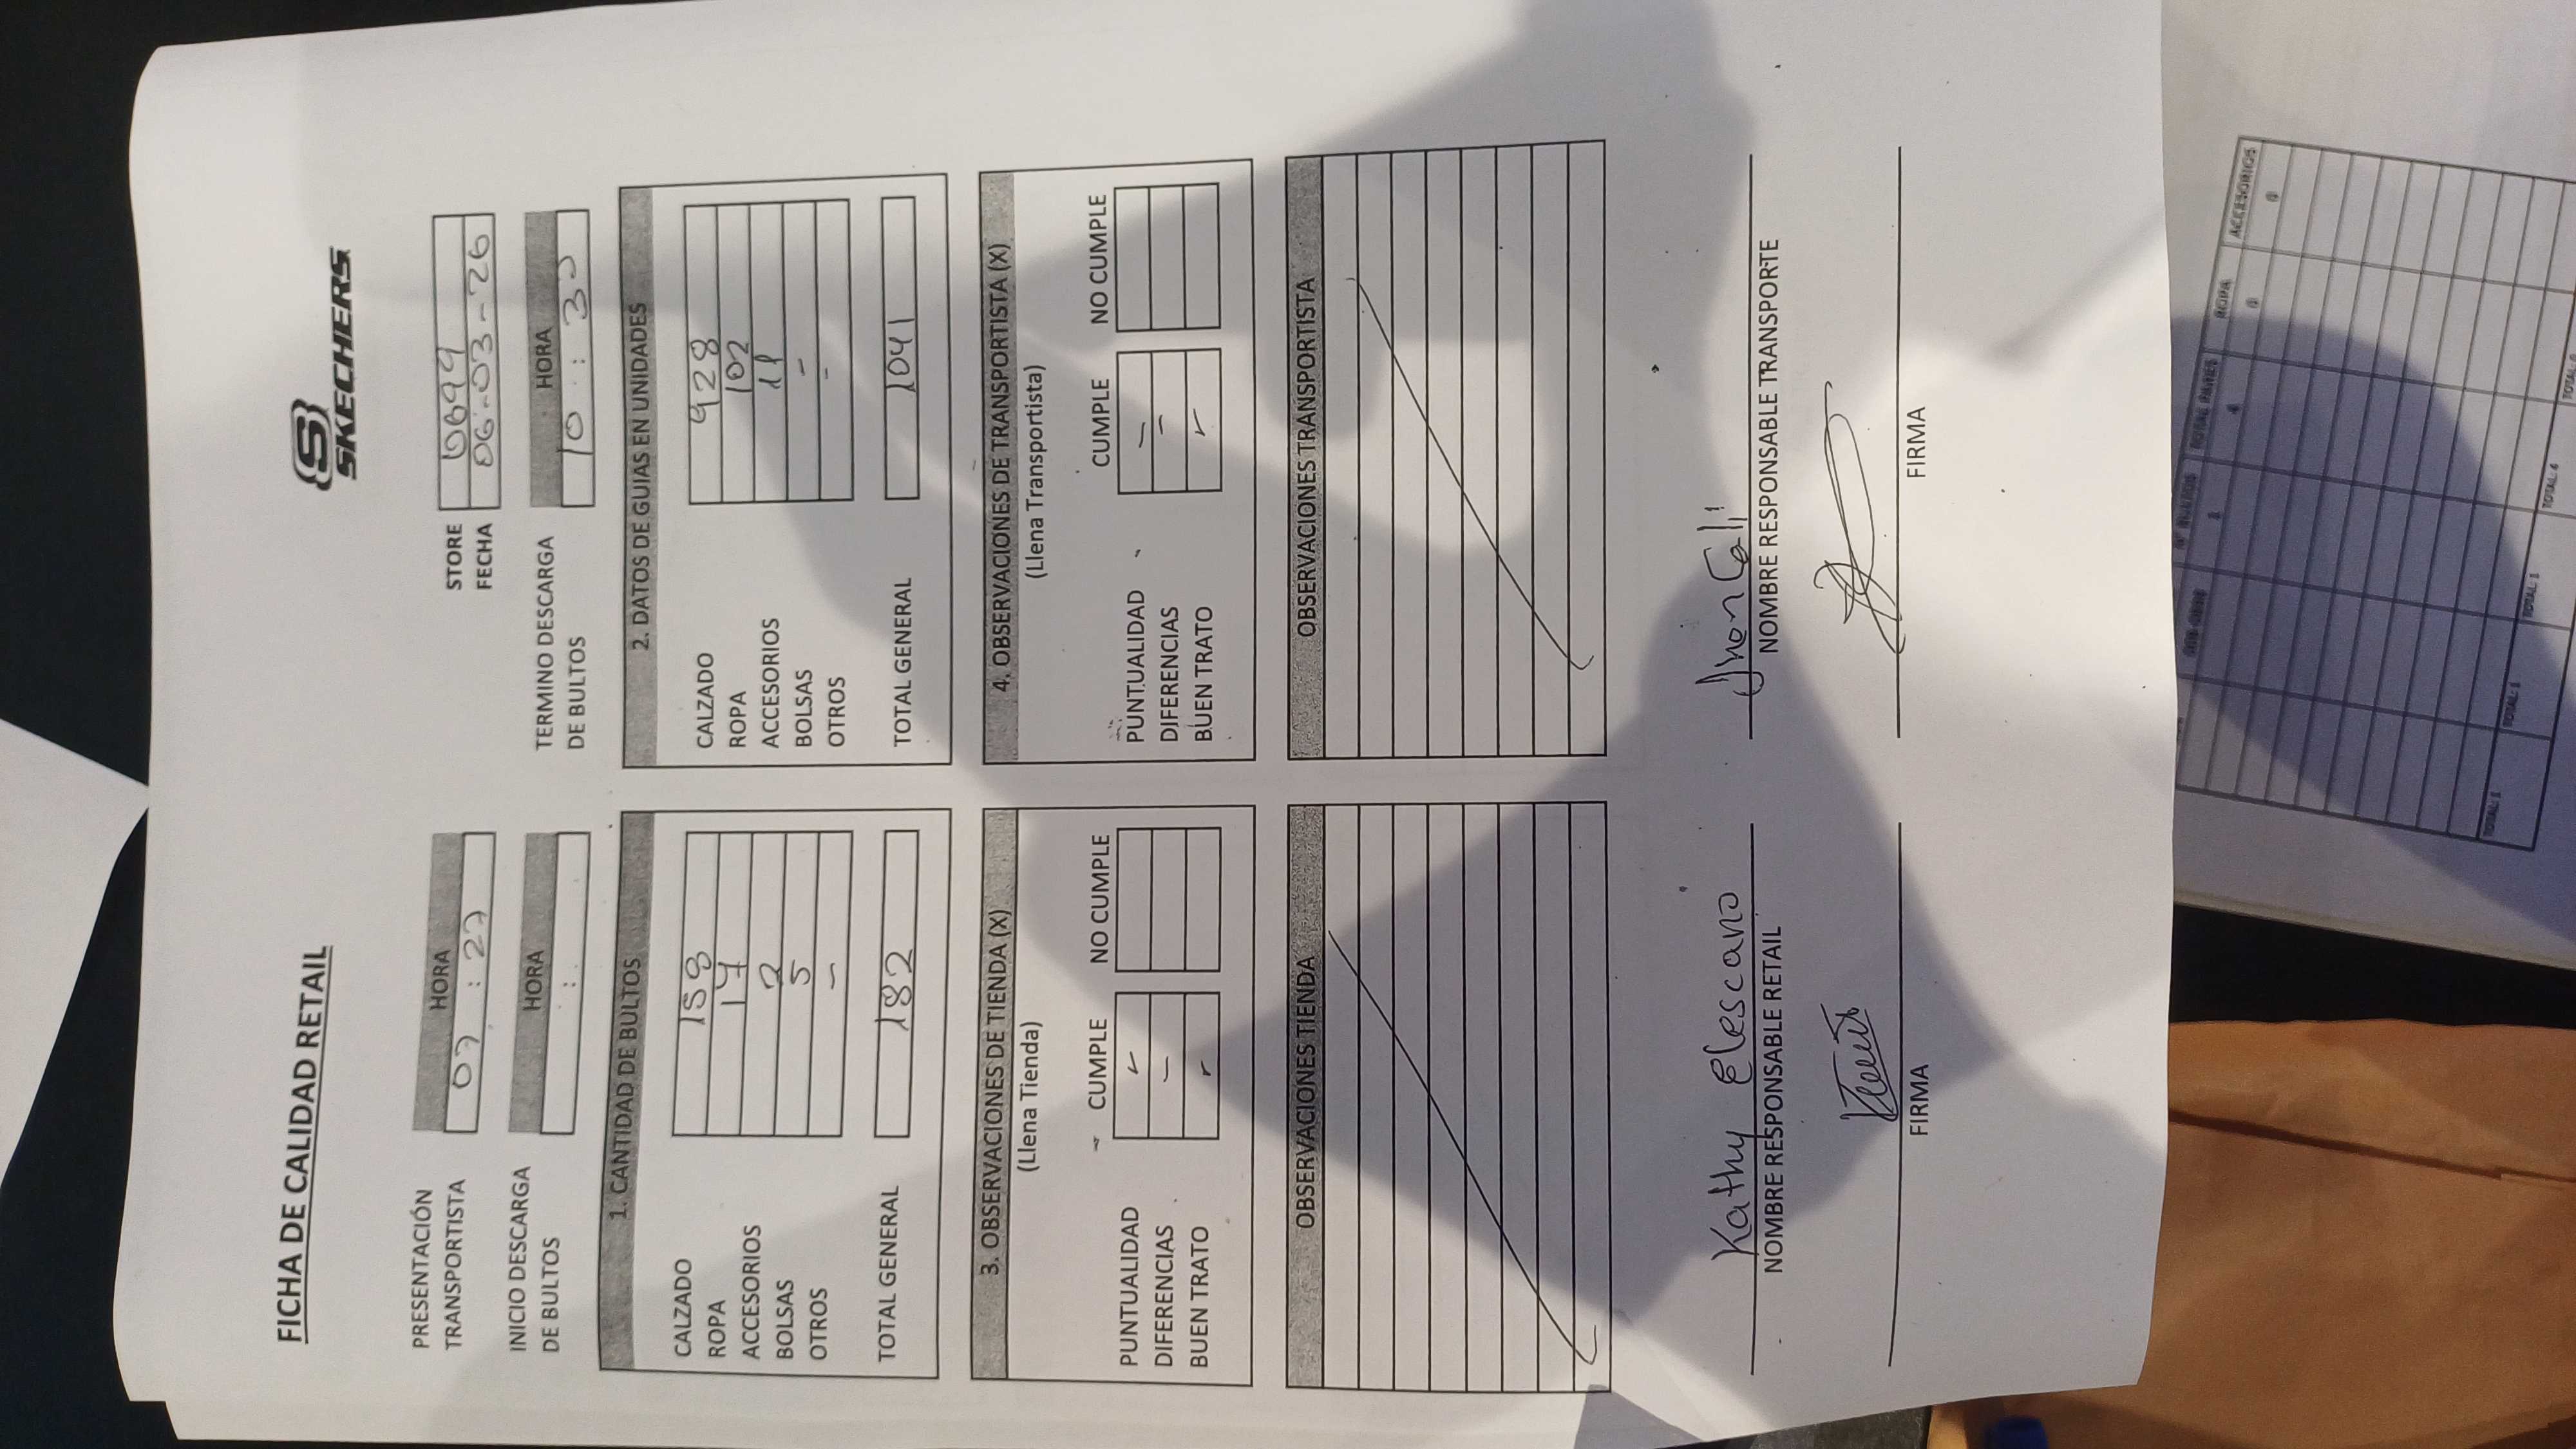 SKECHERS
FICHA DE CALIDAD RETAIL
STORE 0899
FECHA 06-03-26
PRESENTACIÓN TRANSPORTISTA
HORA
07 : 27
INICIO DESCARGA DE BULTOS
HORA
:
TERMINO DESCARGA DE BULTOS
HORA
10 : 30
1. CANTIDAD DE BULTOS
CALZADO 158
ROPA 17
ACCESORIOS 2
BOLSAS 5
OTROS -
TOTAL GENERAL 182
2. DATOS DE GUIAS EN UNIDADES
CALZADO 928
ROPA 102
ACCESORIOS 11
BOLSAS -
OTROS -
TOTAL GENERAL 1041
3. OBSERVACIONES DE TIENDA (X)
(Llena Tienda)
CUMPLE NO CUMPLE
PUNTUALIDAD
DIFERENCIAS
BUEN TRATO
4. OBSERVACIONES DE TRANSPORTISTA (X)
(Llena Transportista)
CUMPLE NO CUMPLE
PUNTUALIDAD
DIFERENCIAS
BUEN TRATO
OBSERVACIONES TIENDA
OBSERVACIONES TRANSPORTISTA
Kathy Elescano
NOMBRE RESPONSABLE RETAIL
Jhon Cali
NOMBRE RESPONSABLE TRANSPORTE
FIRMA
FIRMA
TOTAL PARES ROPA ACCESORIOS
1 4 0 0
TOTAL: 1 TOTAL: 1 TOTAL: 1 TOTAL: 4